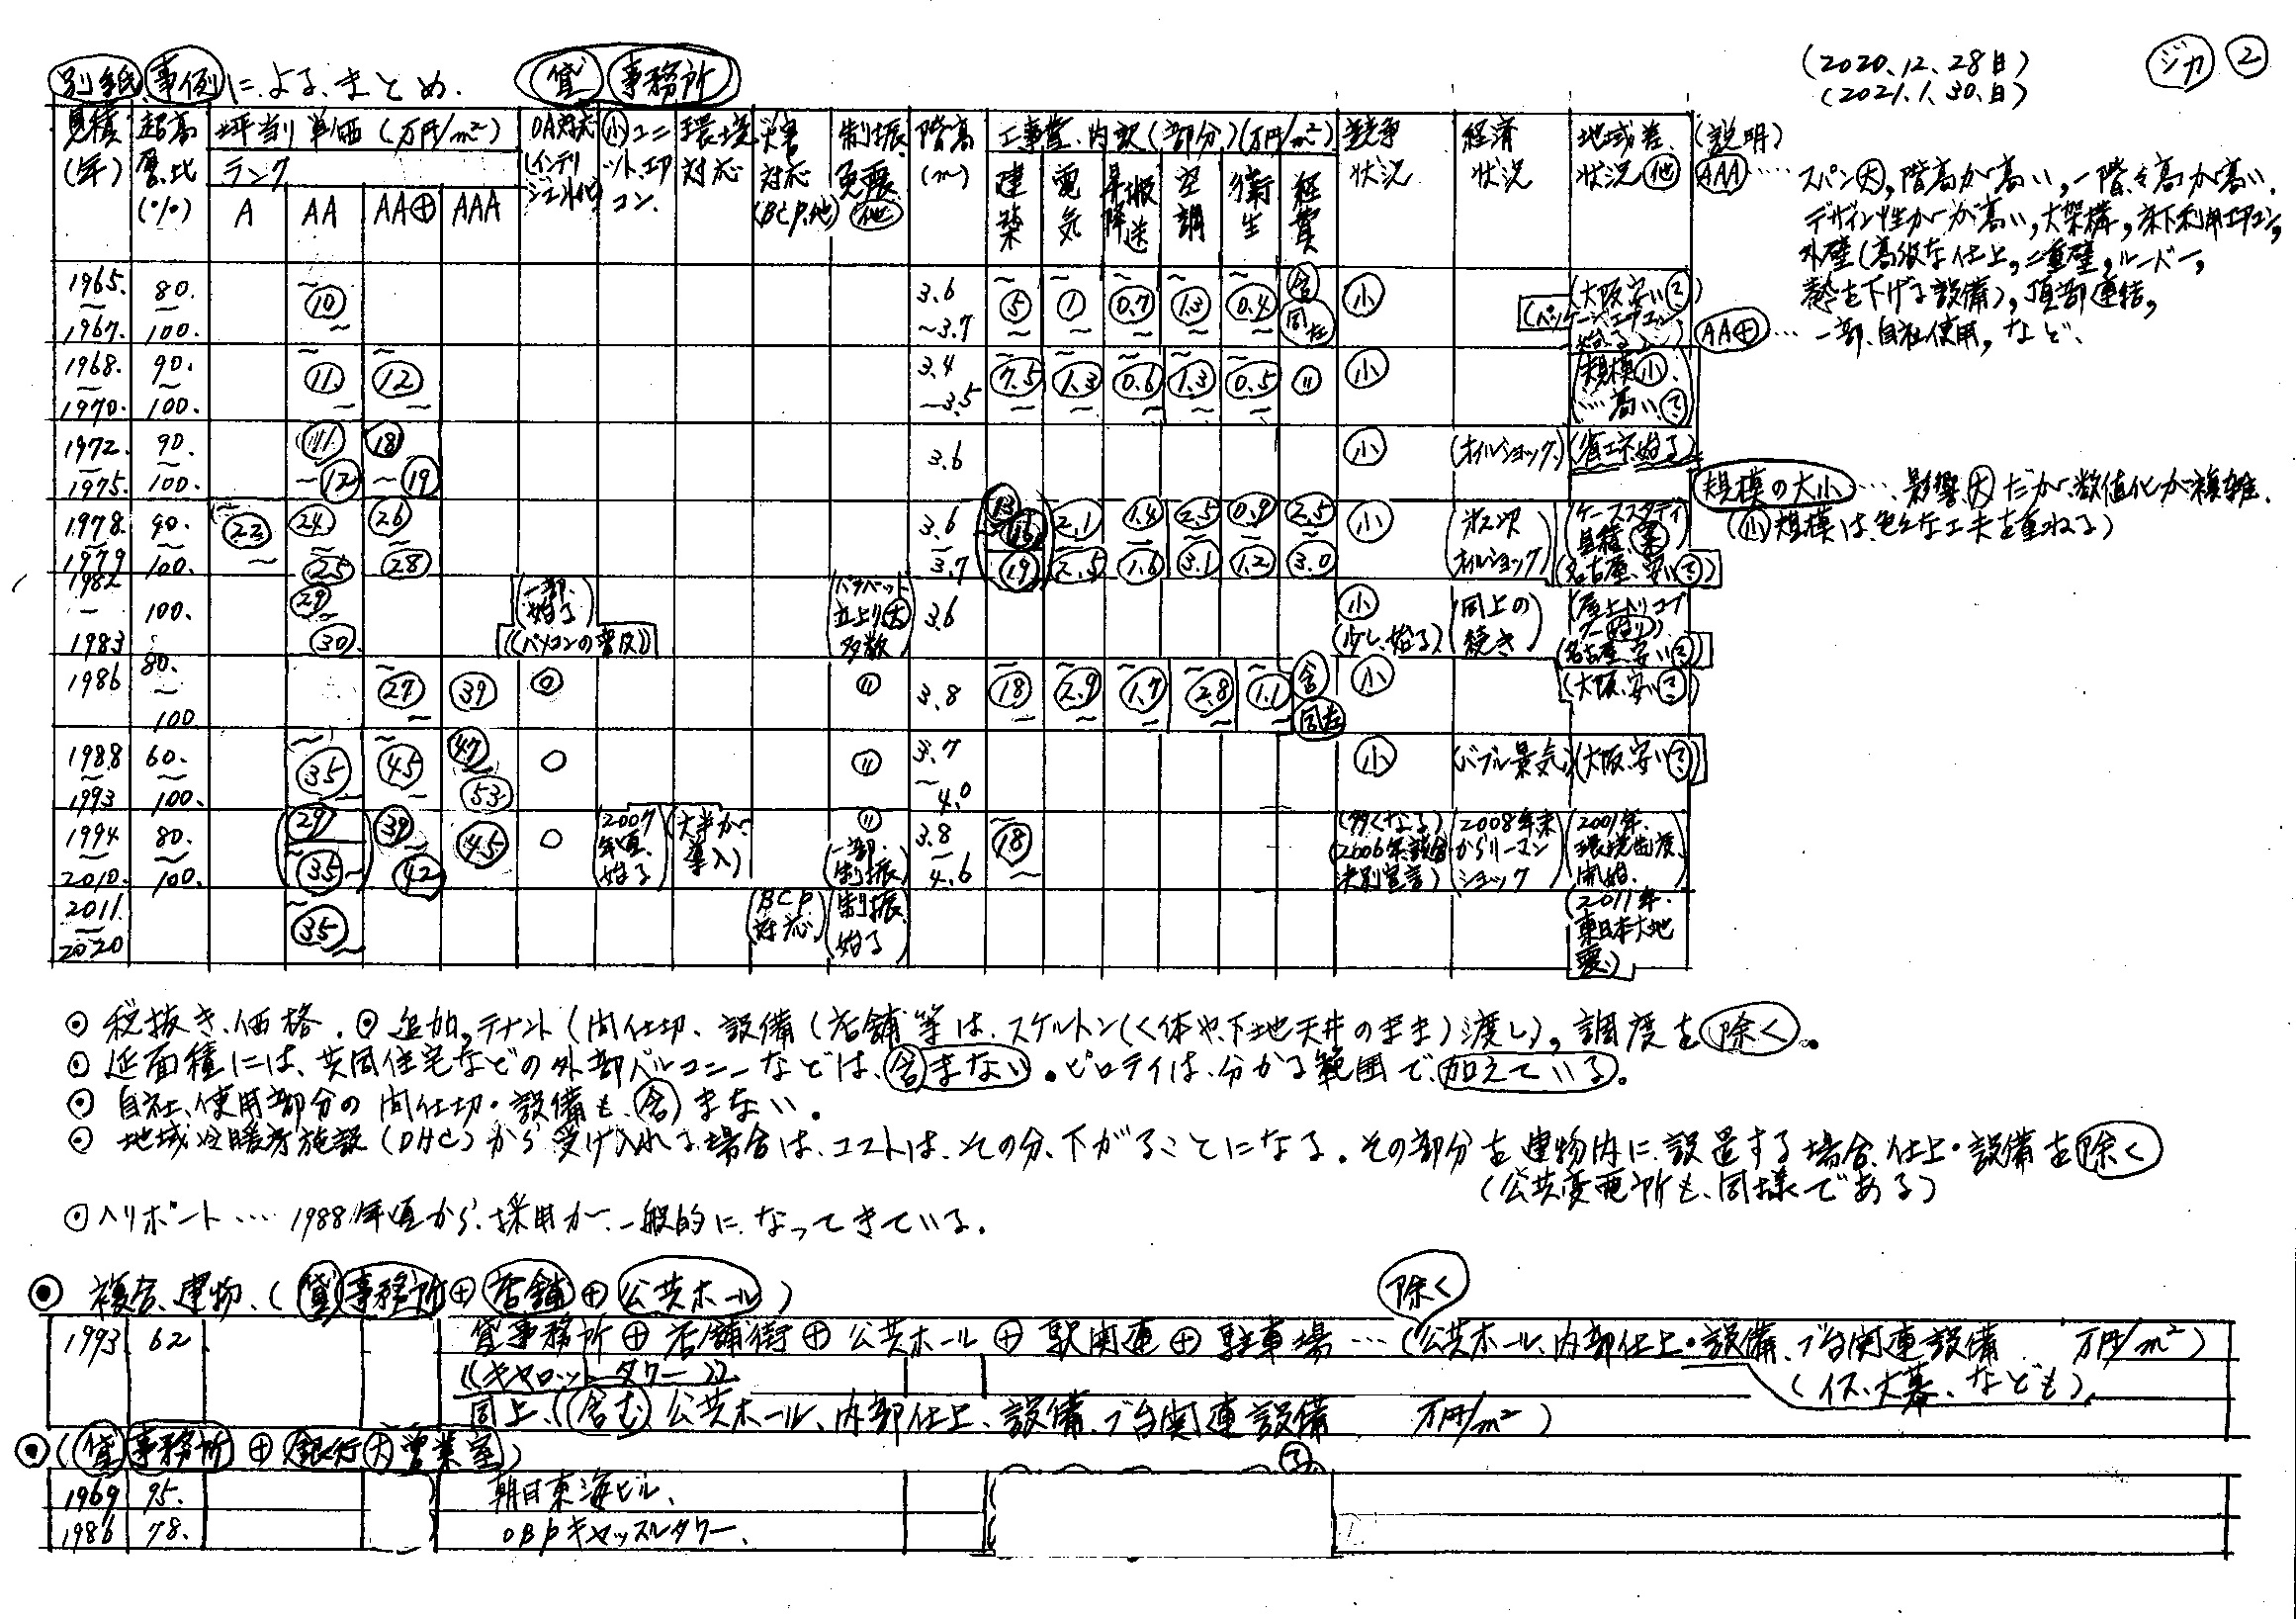 別紙 事例 による まとめ. 貸 事務所
(2020.12.28日) ジカ ②
(2021.1.30.日)
見積(年) 超高層比(%) 坪当り単価(万円/m²) ランク A AA AA⊕ AAA
OA対応(インテリジェント化) 小 ユニット、エアコン. 環境対応 災害対応(BCP,他) 制振、免震 他 階高(m)
工事費、内訳(部分)(万円/m²) 建築 電気 昇降 搬送 空調 衛生 経費
競争状況 経済状況 地域差、状況 他 (説明)
1965.~1967. 80.~100. ~⑩~ 3.6~3.7 ~⑤~ ~①~ ~0.7~ ~1.3~ ~0.4~ 含 同左 小 (大阪、安い?) (パッケージエアコン始まる)
1968.~1970. 90.~100. ~⑪~ ~⑫~ 3.4~3.5 ~7.5~ ~1.3~ ~0.6~ ~1.3~ ~0.5~ 〃 小 (規模小.…高い?)
1972~1975. 90.~100. ⑪~⑫ ⑱~⑲ 3.6 小 (オイルショック) (省エネ、始る)
1978.~1979 90.~100. ~23~ 24~25 26~28 3.6~3.7 13 16 19 2.1~2.5 1.4~1.6 2.5~3.1 0.9~1.2 2.5~3.0 小 (第2次オイルショック) (ケーススタディ見積 案) (名古屋、安い?)
1982-1983 100. 29~30 (一部、始る) ((パソコンの普及)) (パラペット立上り大多数) 3.6 小 (少し、始る) (同上の続き) (名古屋、安い?)
1986 80.~100. ~27~ 39 〇 〃 3.8 ~18~ ~2.9~ ~1.7~ ~2.8~ ~1.1~ 含 同左 小 (大阪、安い?)
1988~1993 60.~100. ~35~ ~45~ 47~53 〇 〃 3.7~4.0 小 (バブル景気) (大阪、安い?)
1994~2010. 80.~100. 29~35~ 39~42 ~45~ 〇 (2007年頃、始る) (大半が導入) 〃(一部、制振) 3.8~4.6 ~18~ (多くなる)(2006年談合決別宣言) (2008年末からリーマンショック) (2001年、環境制度、開始.
2011.~2020 ~35~ (BCP対応) (制振、始る) (2011年.東日本大地震)
AAA …… スパン大, 階高が高い, 一階、階高が高い.
デザイン性が高い, 大架構, 床下利用エアコン,
外壁(高級な仕上, 二重壁, ルーバー,
熱を下げる設備), 頂部連結,
AA⊕ … 一部、自社使用, など、
規模の大小 …. 影響大だが、数値化が複雑.
(小規模は、色々な工夫を重ねる)
⊙ 税抜き、価格. ⊙ 追加, テナント(間仕切、設備(店舗等は、スケルトン(く体や、下地天井のまま)渡し), 調度を除く.
⊙ 延面積には、共同住宅などの外部バルコニーなどは、含まない. ピロティは、分かる範囲で、加えている.
⊙ 自社、使用部分の間仕切・設備も、含まない.
⊙ 地域冷暖房施設(DHC)から受け入れる場合は、コストは、その分、下がることになる. その部分を建物内に、設置する場合、仕上・設備を除く
(公共変電所も、同様である)
⊙ ヘリポート … 1988年頃から、採用が、一般的に、なってきている.
⊙ 複合、建物、(貸 事務所 ⊕ 店舗 ⊕ 公共ホール)
除く
1993 62 貸事務所 ⊕ 店舗街 ⊕ 公共ホール ⊕ 駅関連 ⊕ 駐車場 …(公共ホール、内部仕上・設備、ブ台関連設備 万円/m²)
((キャロットタワー)) (イス、大幕、なども)
同上、(含む、公共ホール、内部仕上、設備、ブ台関連設備 万円/m²)
⊙ (貸 事務所 ⊕ 銀行 大 営業室)
1969 95. 朝日東海ビル、
1986 78. OBPキャッスルタワー.